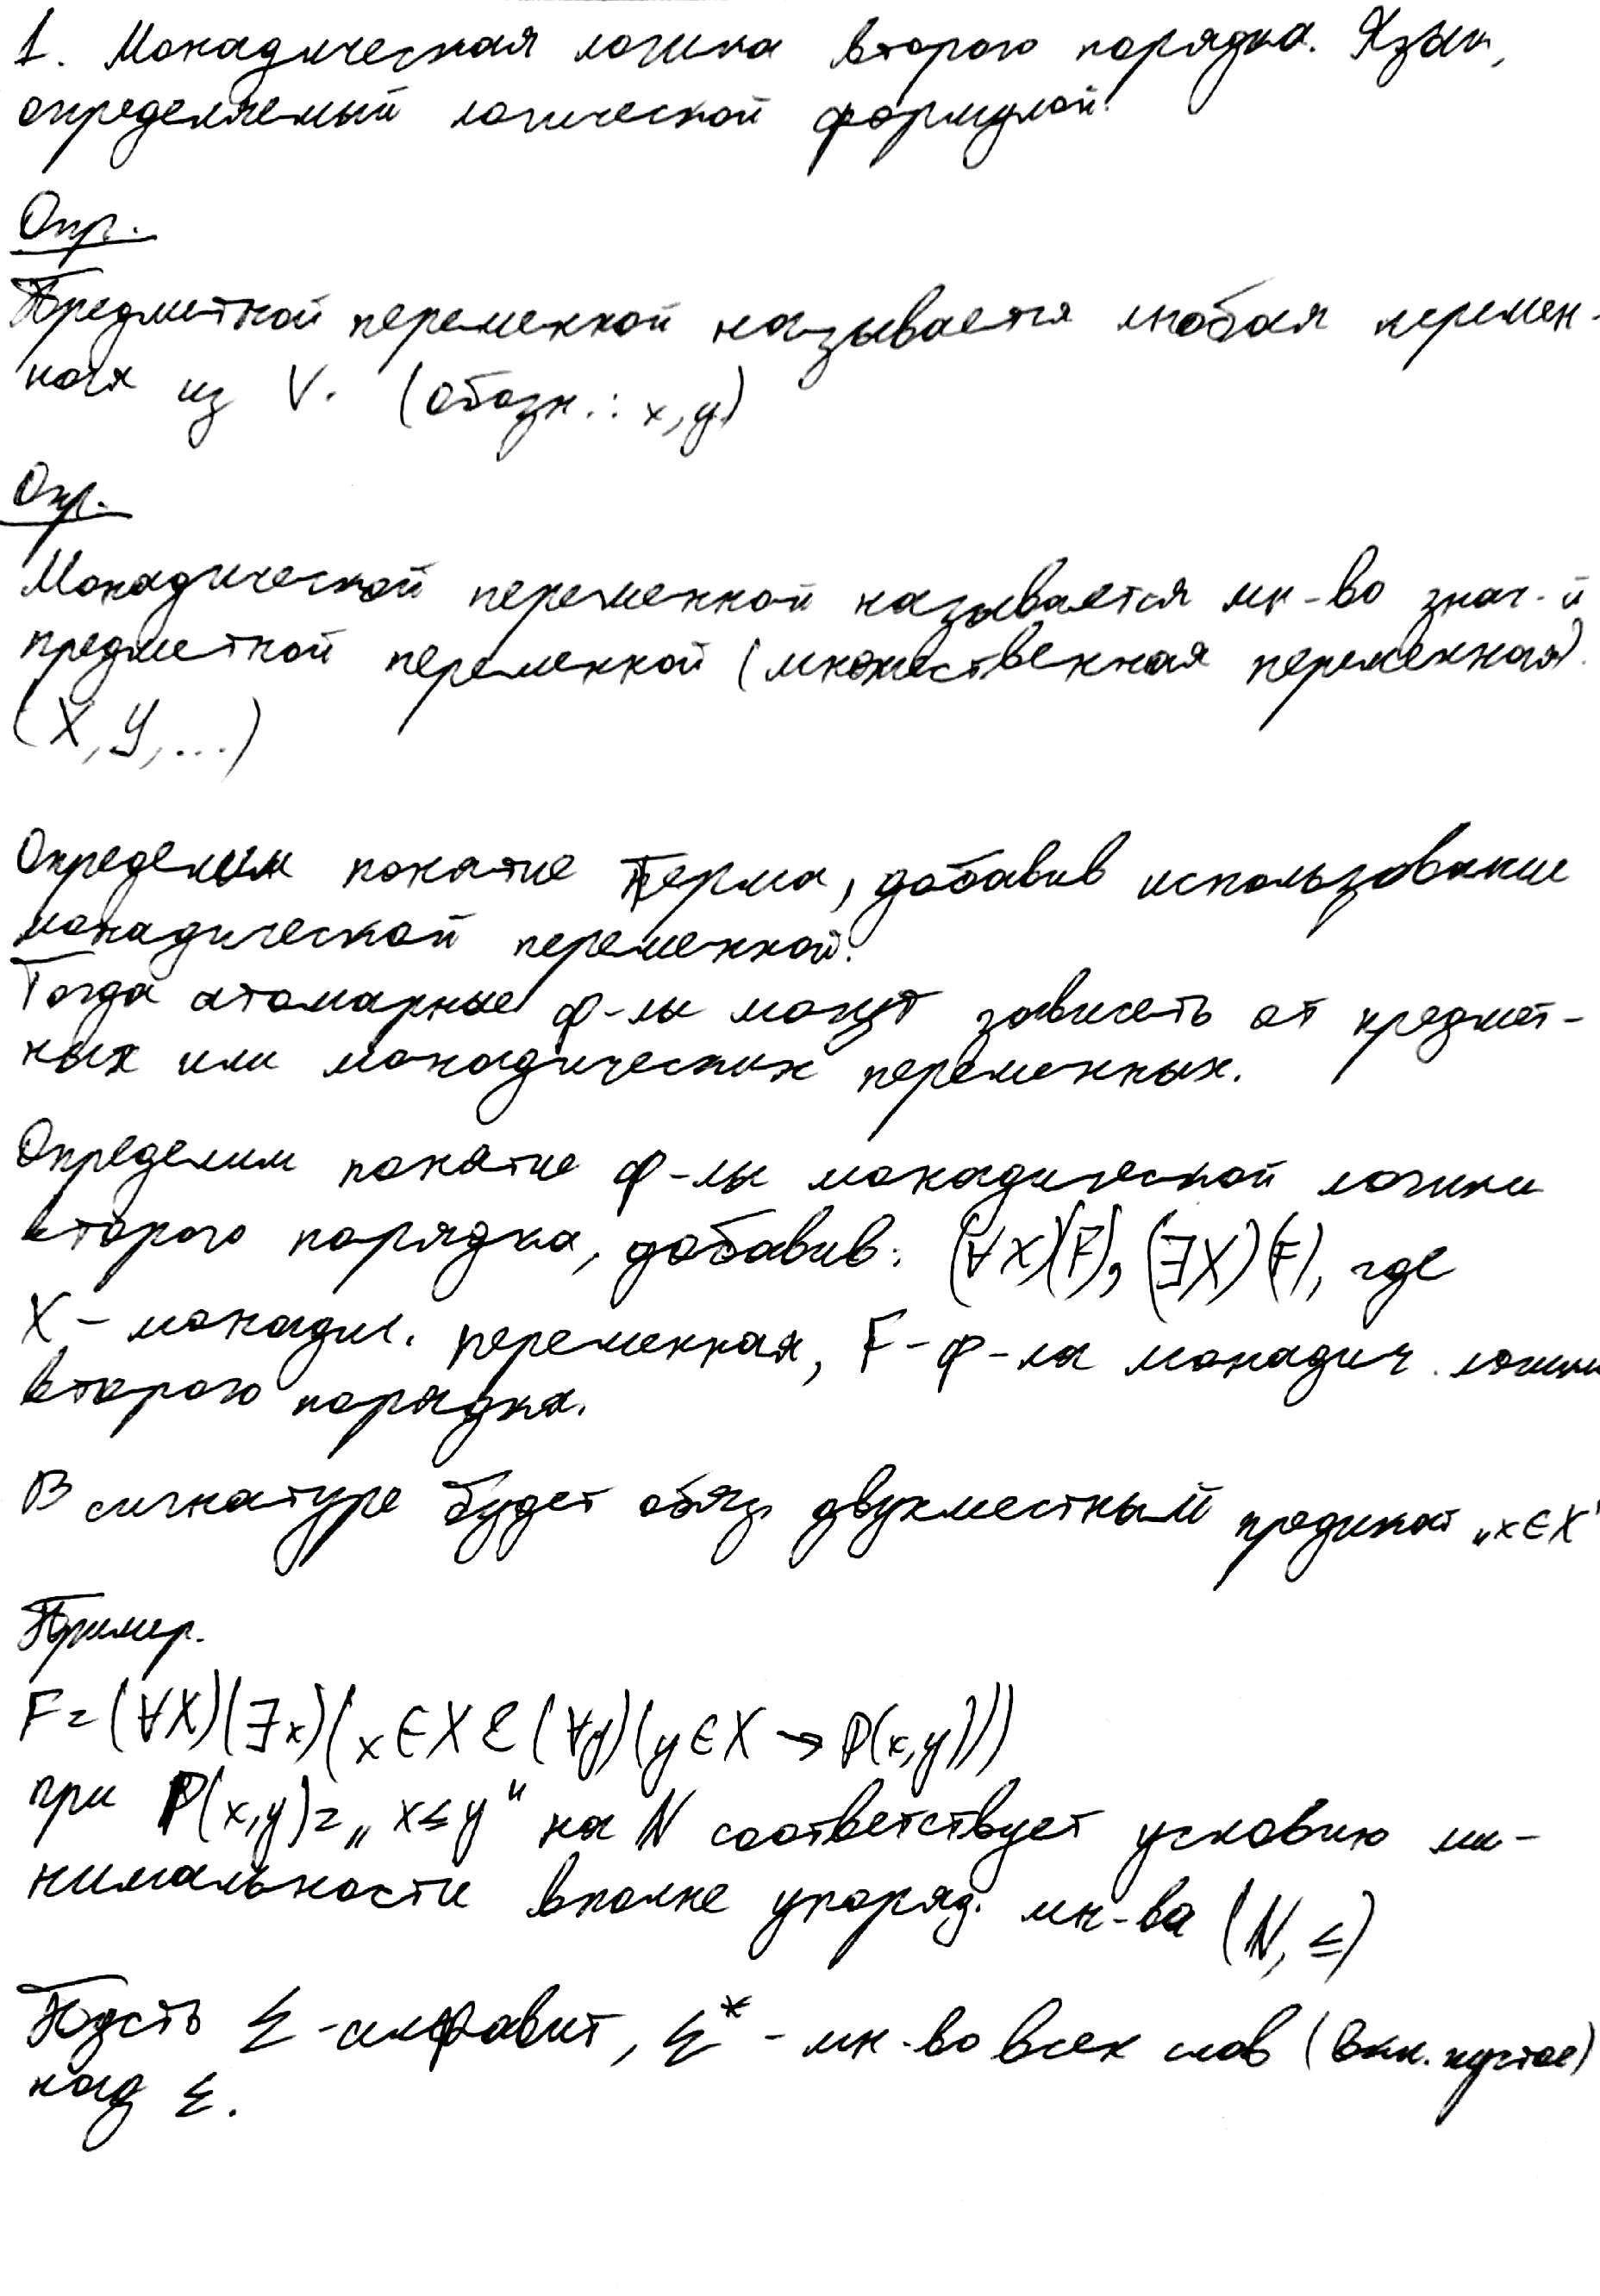 1. Монадическая логика второго порядка. Язык,
определяемый логической формулой.
Опр.
Предметной переменной называется любая перемен-
ная из V. (обозн.: x, y)
Опр.
Монадической переменной называется мн-во знач-й
предметной переменной (множественная переменная).
(X, Y, ...)
Определим понятие терма, добавив использование
монадической переменной.
Тогда атомарные ф-лы могут зависеть от предмет-
ных или монадических переменных.
Определим понятие ф-лы монадической логики
второго порядка, добавив: (∀X)(F), (∃X)(F), где
X - монадич. переменная, F - ф-ла монадич. логики
второго порядка.
В сигнатуре будет обяз. двухместный предикат „x∈X"
Пример.
F = (∀X)(∃x)(x∈X & (∀y)(y∈X → P(x,y)))
при P(x,y) = „x≤y" на N соответствует условию ми-
нимальности вполне упоряд. мн-ва (N, ≤)
Пусть Σ - алфавит, Σ* - мн-во всех слов (вкл. пустое)
над Σ.